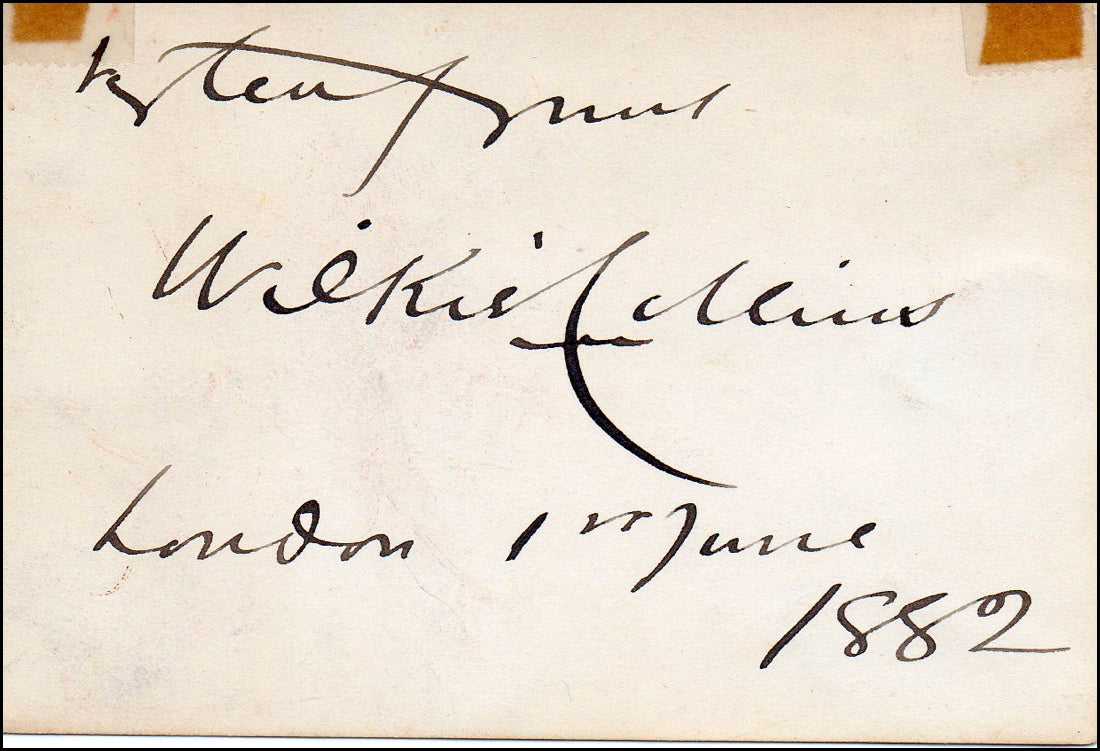 very truly yours
Wilkie Collins
London 1st June
1882